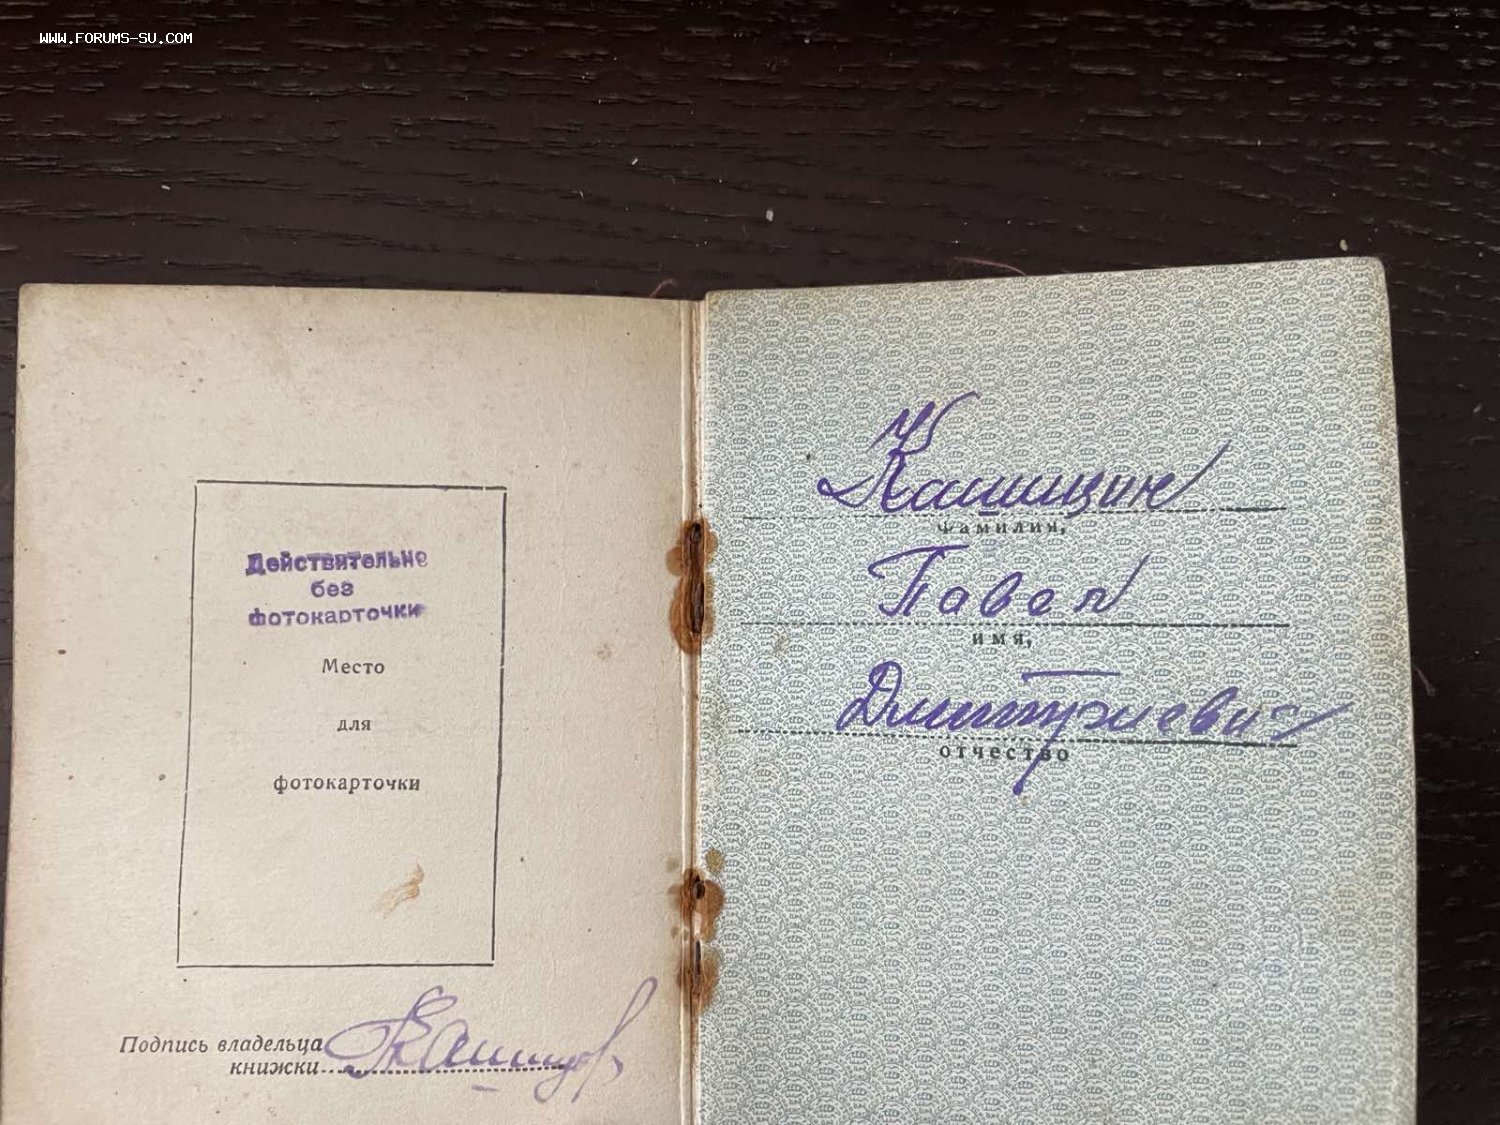 WWW.FORUMS-SU.COM
Действительно
без
фотокарточки
Место
для
фотокарточки
Подпись владельца
книжки
Кашицин
фамилия,
Павел
имя,
Дмитриевич
отчество